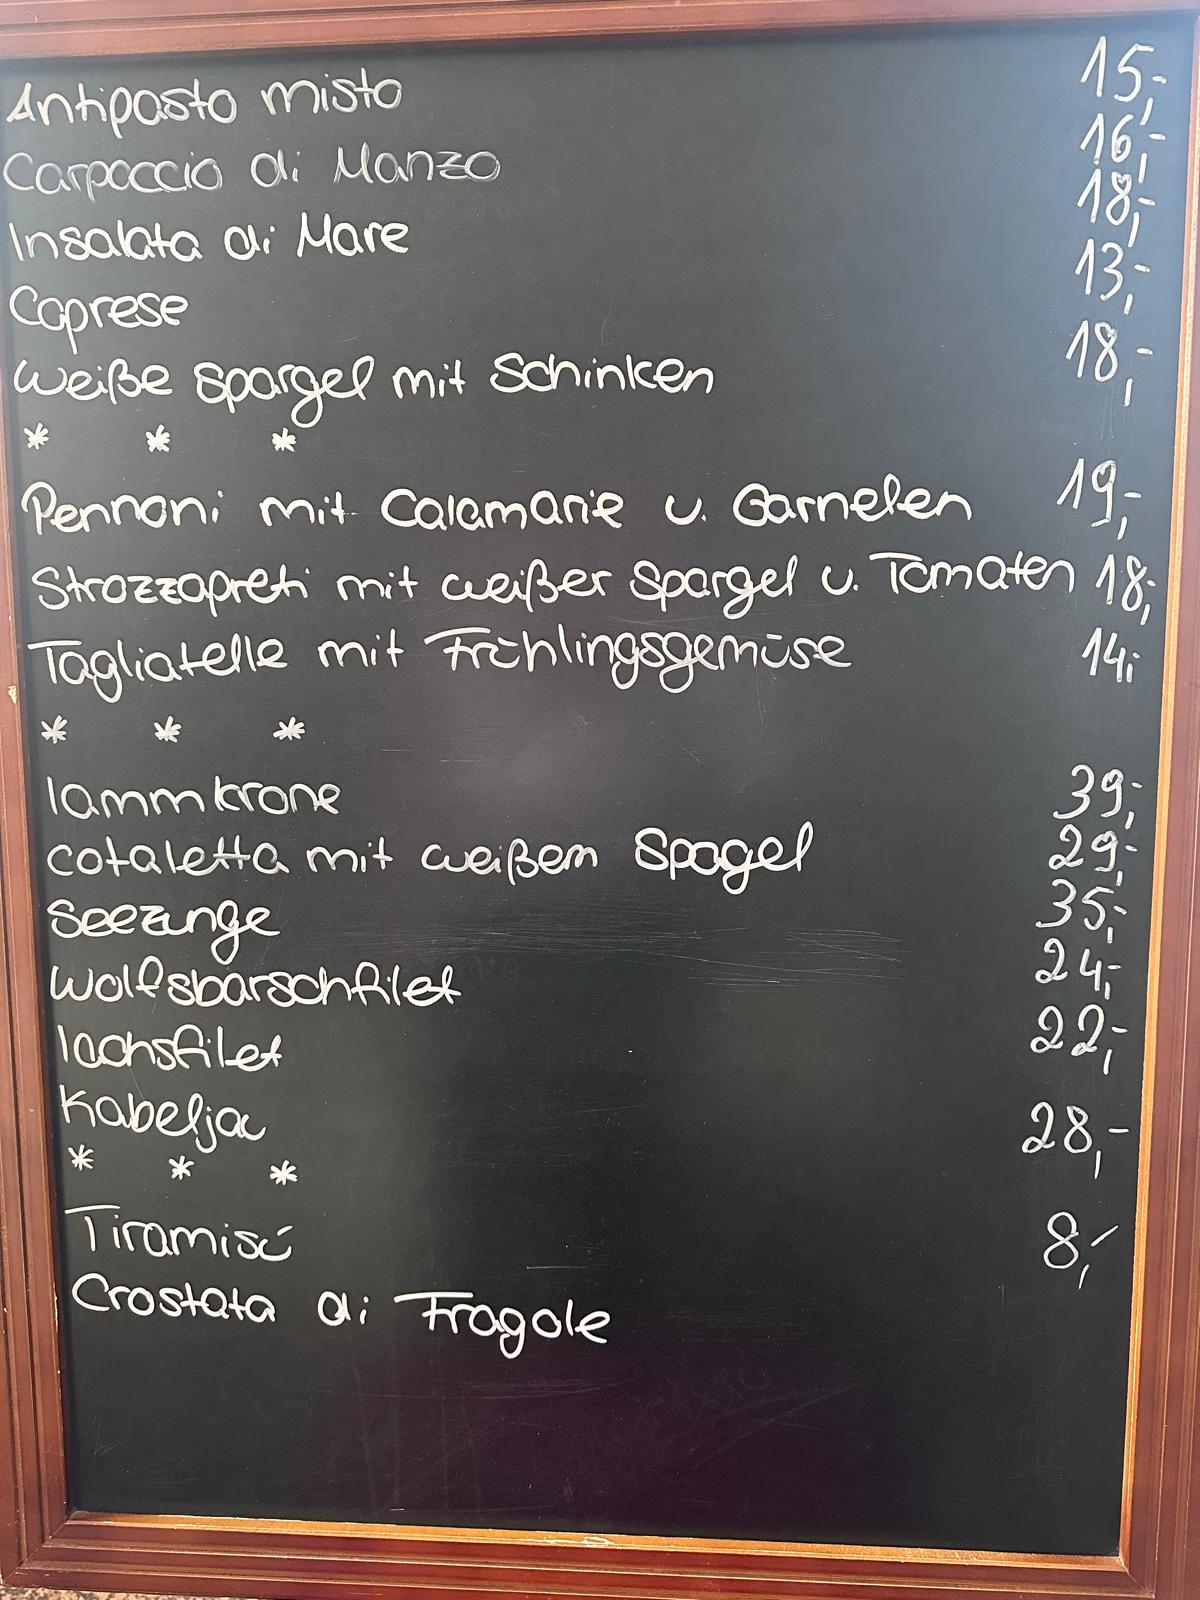 Antipasto misto 15,-
Carpaccio di Manzo 16,-
Insalata di Mare 18,-
Caprese 13,-
weiße Spargel mit Schinken 18,-
* * *
Pennoni mit Calamarie u. Garnelen 19,-
Strozzapreti mit weißer Spargel u. Tomaten 18,-
Tagliatelle mit Frühlingsgemüse 14,-
* * *
lammkrone 39,-
cotaletta mit weißem Spagel 29,-
Seezunge 35,-
Wolfsbarschfilet 24,-
lachsfilet 22,-
Kabeljau 28,-
* * *
Tiramisú 8,-
Crostata di Fragole